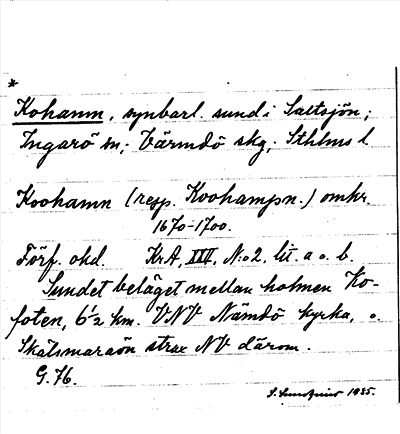 *
Kohamn, synbarl. sund i Saltsjön;
Ingarö sn; Värmdö skg; Sthlms l
Koohamn (resp. Koohampn.) omkr.
1670-1700.
Förf. okd. KrA, XIX, N:o 2, lit. a o. b.
Sundet beläget mellan holmen Ko-
foten, 6½ km. VNV Nämdö kyrka, o.
Skätsmaraön strax NV därom.
G. 76.
1935.